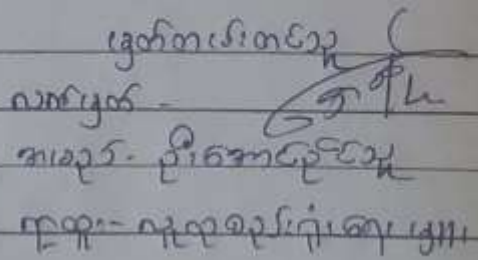 ခွင့်တောင်းတင်သူ
လက်မှတ် -
အမည် - ဦးအောင်ညိုင်သူ
ရာထူး - လူထုစည်းရုံးရေးမှူး